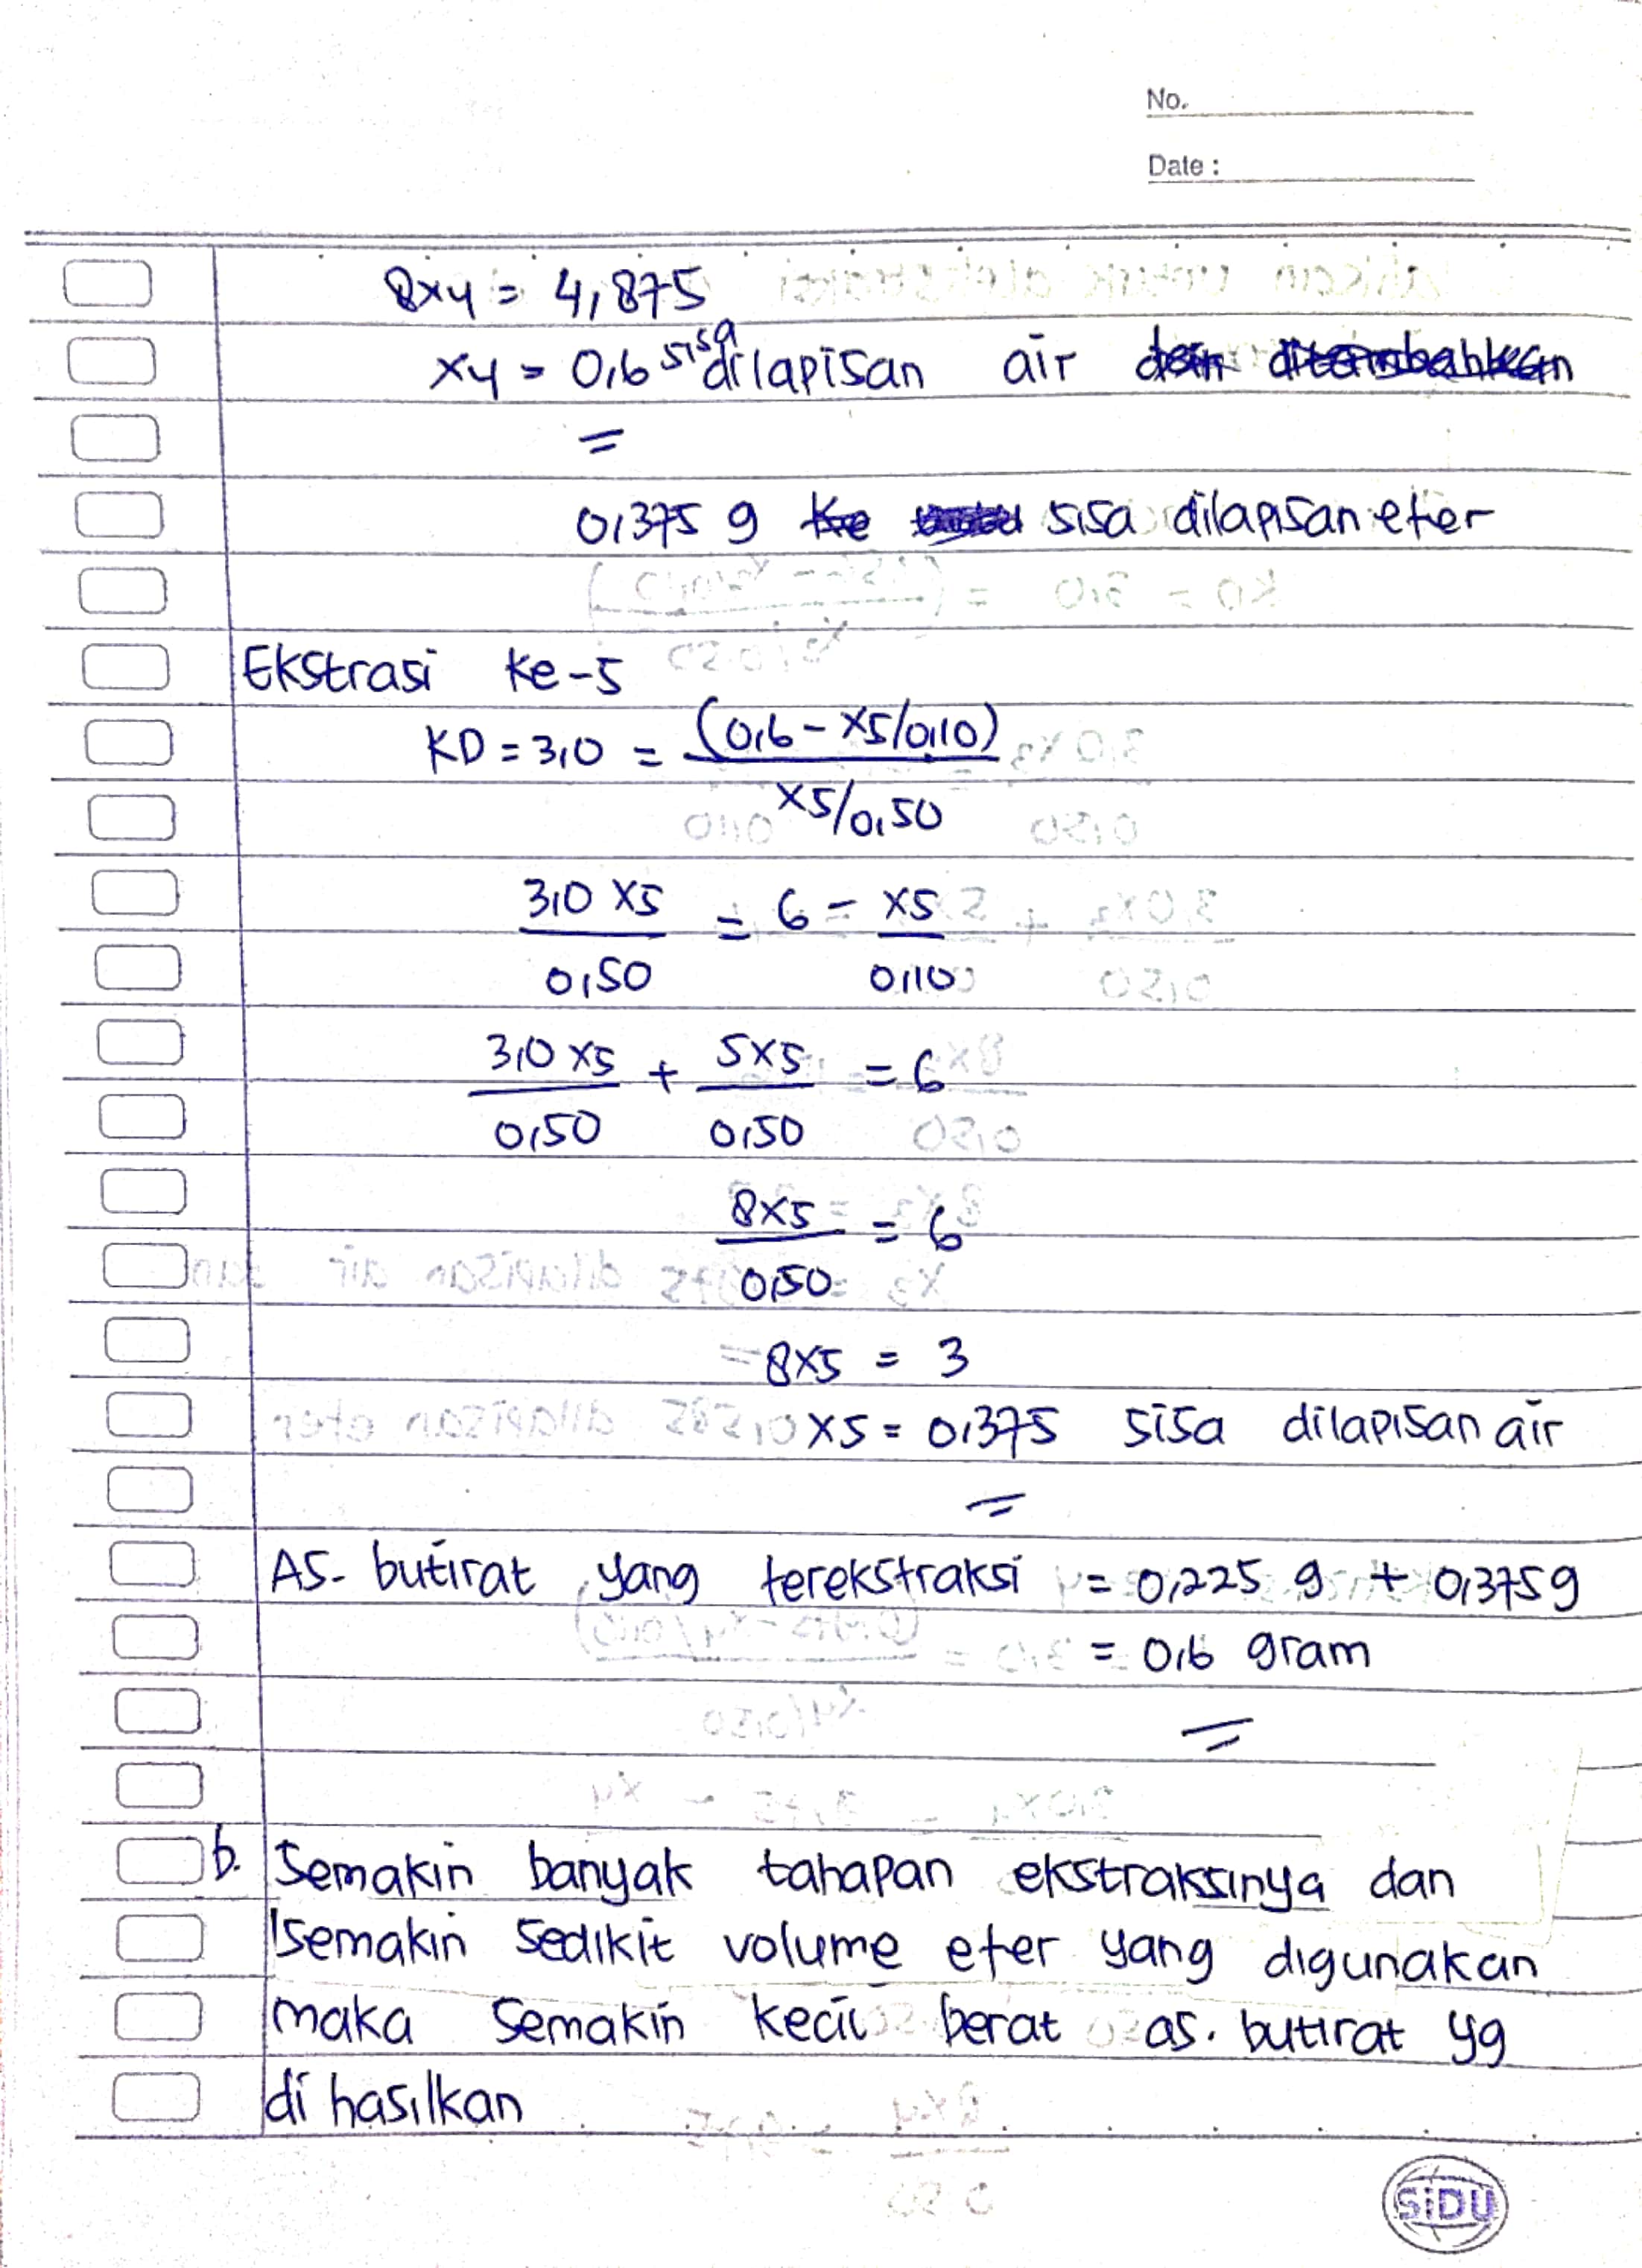 No.
Date :
8x4 = 4,875
x4 = 0,6 sisa dilapisan air
=
0,375 g sisa dilapisan eter
Ekstrasi ke-5
KD = 3,0 = (0,6 - x5/0,10)
x5/0,50
3,0 x5 = 6 - x5
0,50 0,10
3,0 x5 + 5x5 = 6
0,50 0,50
8x5 = 6
0,50
8x5 = 3
x5 = 0,375 sisa dilapisan air
=
AS. butirat yang terekstraksi = 0,225 g + 0,375g
= 0,6 gram
=
b. Semakin banyak tahapan ekstraksinya dan
semakin sedikit volume eter yang digunakan
maka semakin kecil berat as. butirat yg
di hasilkan
SiDU